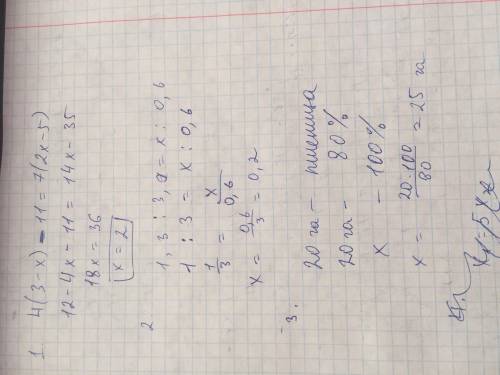 1 4(3-x)-11=7(2x-5)
12-4x-11=14x-35
18x=36
x=2
2 1,3:3,9=x:0,6
1:3=x:0,6
1/3=x/0,6
x=0,6/3=0,2
3. 20 га - пшеница
20 га - 80%
x - 100%
x=20·100/80=25 га
4.